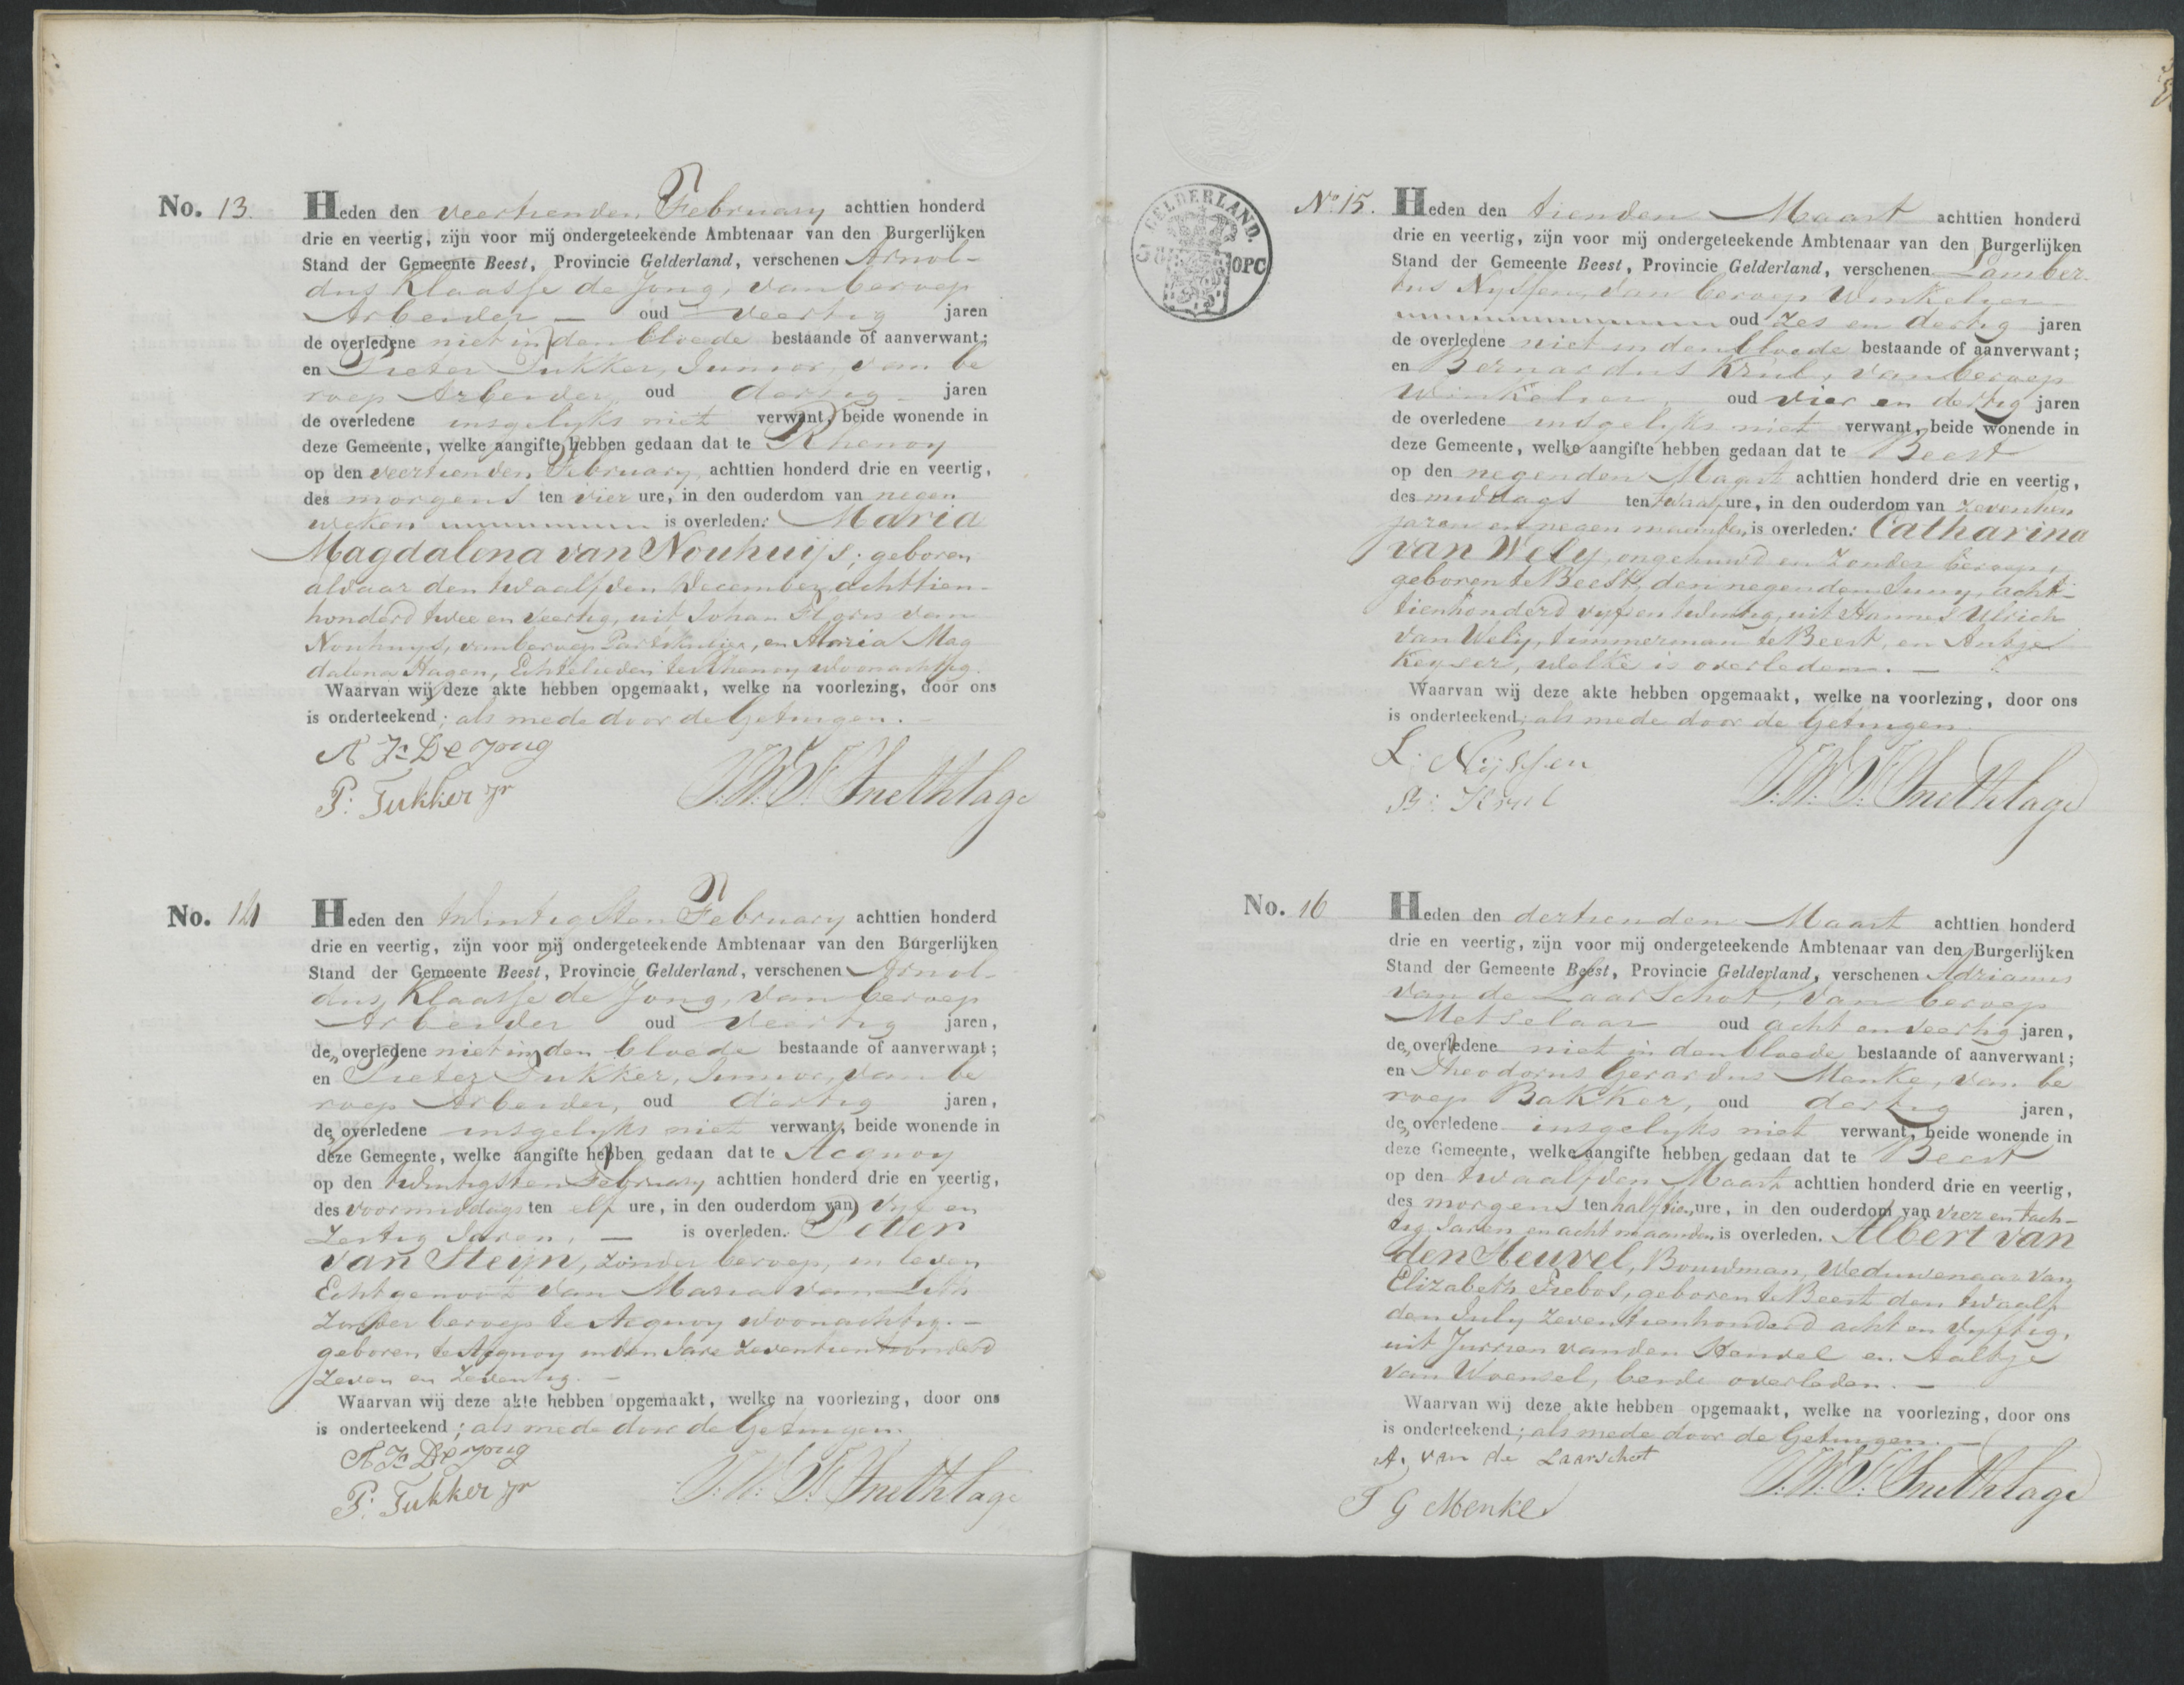 No. 13.
Heden den veertienden February achttien honderd
drie en veertig, zijn voor mij ondergeteekende Ambtenaar van den Burgerlijken
Stand der Gemeente Beest, Provincie Gelderland, verschenen Arnol-
dus Klaasse de Jong, van beroep
Arbeider — oud veertig jaren
de overledene niet in den bloede bestaande of aanverwant;
en Pieter Tukker, Junior, van be
roep Arbeider oud dertig jaren
de overledene insgelyks niet verwant, beide wonende in
deze Gemeente, welke aangifte hebben gedaan dat te Rhenoy
op den veertienden February achttien honderd drie en veertig,
des morgens ten vier ure, in den ouderdom van negen
weken is overleden: Maria
Magdalena van Nouhuijs; geboren
aldaar den twaalfden December achttien-
honderd twee en veertig, uit Johan Floris van
Nouhuys, van beroep Partikulier, en Maria Mag
dalena Hagen, Echtelieden te Rhenoy woonachtig.
Waarvan wij deze akte hebben opgemaakt, welke na voorlezing, door ons
is onderteekend; als mede door de Getuigen. —
A K De Jong
P: Tukker jr
Snethlage
No. 14
Heden den twintigsten February achttien honderd
drie en veertig, zijn voor mij ondergeteekende Ambtenaar van den Burgerlijken
Stand der Gemeente Beest, Provincie Gelderland, verschenen Arnol-
dus Klaasse de Jong, van beroep
Arbeider oud veertig jaren,
de overledene niet in den bloede bestaande of aanverwant;
en Pieter Tukker, Junior, van be
roep Arbeider, oud dertig jaren,
de overledene insgelyks niet verwant, beide wonende in
deze Gemeente, welke aangifte hebben gedaan dat te Acquoy
op den twintigsten February achttien honderd drie en veertig,
des voormiddags ten elf ure, in den ouderdom van vyf en
zestig Jaren, — is overleden. Peter
van Steyn, zonder beroep, in leven
Echtgenoot van Maria van
zonder beroep te Acquoy woonachtig. —
geboren te Acquoy in den Jare zeventienhonderd
zeven en zeventig. —
Waarvan wij deze akte hebben opgemaakt, welke na voorlezing, door ons
is onderteekend; als mede door de Getuigen
A K De Jong
P: Tukker jr
Snethlage
GELDERLAND.
OPC
No 15.
Heden den tienden Maart achttien honderd
drie en veertig, zijn voor mij ondergeteekende Ambtenaar van den Burgerlijken
Stand der Gemeente Beest, Provincie Gelderland, verschenen Lamber-
tus Nyssen, van beroep Winkelier
oud zes en dertig jaren
de overledene niet in den bloede bestaande of aanverwant;
en Bernardus Krul, van beroep
Winkelier, oud vier en dertig jaren
de overledene insgelyks niet verwant, beide wonende in
deze Gemeente, welke aangifte hebben gedaan dat te Beest
op den negenden Maart achttien honderd drie en veertig,
des middags ten twaalf ure, in den ouderdom van zeventien
jaren en negen maanden, is overleden: Catharina
van Wely, ongehuwd en zonder beroep,
geboren te Beest, den negenden Juny, acht-
tienhonderd vyf en twintig, uit Hannes Ulrich
van Wely, timmerman te Beest, en Antje
Keyser, welke is overleden. —
Waarvan wij deze akte hebben opgemaakt, welke na voorlezing, door ons
is onderteekend; als mede door de Getuigen
L. Nijssen
B: Krul
Snethlage
No. 16
Heden den dertienden Maart achttien honderd
drie en veertig, zijn voor mij ondergeteekende Ambtenaar van den Burgerlijken
Stand der Gemeente Beest, Provincie Gelderland, verschenen Adrianus
van de Laarschot, van beroep
Metselaar oud acht en veertig jaren,
de overledene niet in den bloede bestaande of aanverwant;
en Theodorus Gerardus Menke, van be
roep Bakker, oud dertig jaren,
de overledene insgelyks niet verwant, beide wonende in
deze Gemeente, welke aangifte hebben gedaan dat te Beest
op den twaalfden Maart achttien honderd drie en veertig,
des morgens ten half tien ure, in den ouderdom van vier en tach-
tig Jaren en acht maanden is overleden. Albert van
den Heuvel, Bouwman, Weduwenaar van
Elizabeth Frebos, geboren te Beest den twaalf
den July zeventienhonderd acht en vyftig,
uit Jurrien van den Heuvel en Aaltje
van Woensel, beide overleden. —
Waarvan wij deze akte hebben opgemaakt, welke na voorlezing, door ons
is onderteekend; als mede door de Getuigen. —
A. van de Laarschot
T G Menke
Snethlage